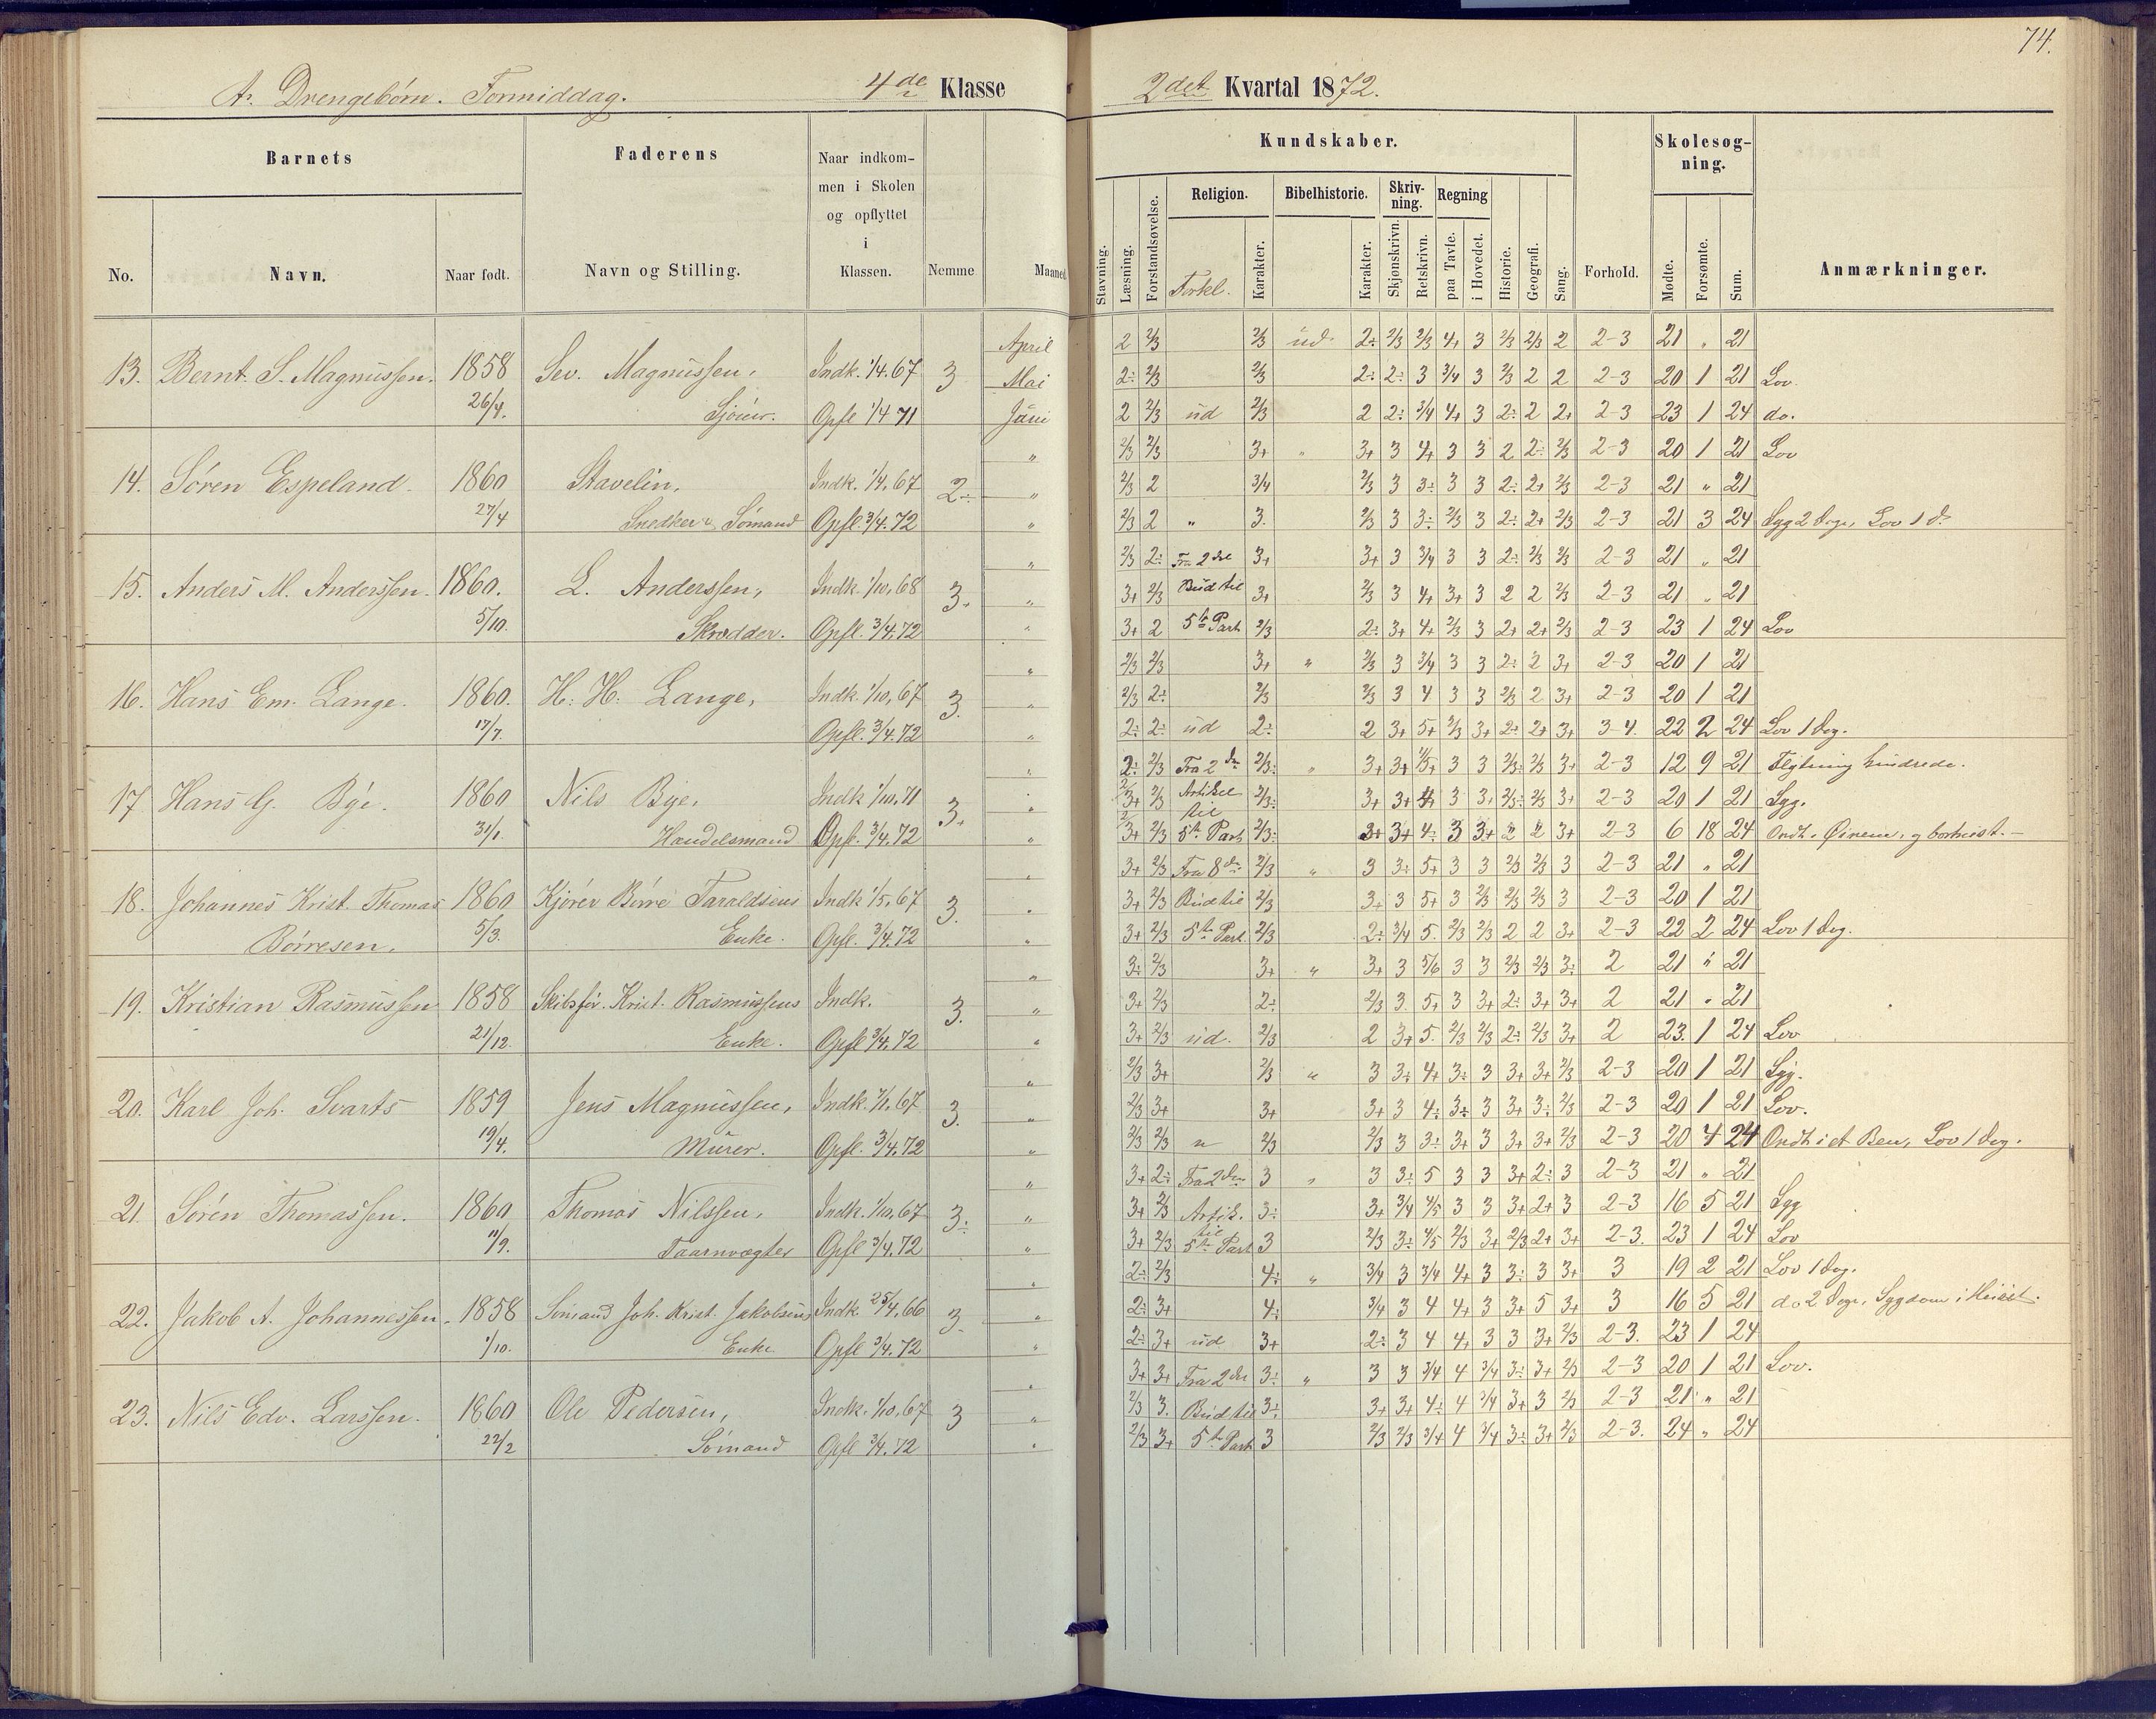 74.
A. Drengebørn. Formiddag. 4de Klasse 2det Kvartal 1872.
Barnets Faderens Naar indkom-
men i Skolen
og opflyttet
i
Klassen. Nemme Maaned
No. Navn. Naar født. Navn og Stilling.
Kundskaber. Skolesøg-
ning.
Stavning. Læsning. Forstandsøvelse. Religion. Bibelhistorie. Skriv-
ning. Regning
Forkl. Karakter. Karakter. Skjønskrivn. Retskrivn. paa Tavle. i Hovedet. Historie. Geografi. Sang. Forhold. Mødte. Forsømte. Sum. Anmærkninger.
April 2 2/3 2/3 ud 2÷ 2/3 2/3 4+ 3 2/3 2/3 2 2-3 21 " 21
13. Bernt. S. Magnussen. 1858 Sev. Magnussen, Indk. 1/4.67 3 Mai 2÷ 2/3 2/3 2÷ 2÷ 3 3/4 3 2/3 2 2 2-3 20 1 21 Lov.
26/4. Opfl 1/4 71 Juni 2 2/3 ud 2/3 2 2÷ 3/4 4+ 3 2÷ 2 2+ 2-3 23 1 24 do.
" 2/3 2/3 3+ " 3+ 3 4+ 3 3 2 2÷ 2/3 2-3 20 1 21 Lov
14. Søren Espeland. 1860 Stavelin, Indk. 1/4.67 2÷ " 2/3 2 3/4 2/3 3 3÷ 3 3 2÷ 2+ 2/3 2-3 21 " 21
27/4 Snedker & Sømand Opfl. 3/4.72 " 2/3 2 " 3. 2/3 3 3÷ 2/3 3 2÷ 2+ 2/3 2-3 21 3 24 Syg 2 Dage, Lov 1 d.
" 2/3 2÷ Fra 2det 3+ 3+ 3 3/4 3 3 2÷ 2/3 2/3 2-3 21 " 21
15. Anders M. Anderssen. 1860. L. Anderssen, Indk 1/10.68 3. " 3+ 2/3 Bud til 3+ 2/3 3 4+ 3+ 3 2 2 2/3 2-3 21 " 21
5/10. Skrædder. Opfl. 3/4.72 " 3+ 2 5te Part 2/3 2÷ 3+ 4+ 2/3 3 2+ 2+ 2/3 2-3 23 1 24 Lov
" 2/3 2/3 3+ " 2/3 3 3/4 3 3 2÷ 2 3+ 2-3 20 1 21
16. Hans Em. Lange. 1860. H. H. Lange, Indk. 1/10.67 3. " 2/3 2÷ 2/3 2/3 3 4 3 3 2/3 2 3+ 2-3 20 1 21
17/7. Opfl. 3/4.72 " 2÷ 2÷ ud 2÷ 2 3+ 5+ 2/3 3+ 2÷ 2+ 3+ 3-4. 22 2 24 Lov 1 Dag.
" 2÷ 2/3 Fra 2den 2/3÷ " 3+ 3+ 4/5+ 3 3 2/3÷ 2/3 3+ 2-3 12 9 21 Flytning hindrede.
17 Hans G. Bye. 1860 Nils Bye, Indk 1/10.71 3+ " 3+ 2/3 Artikel 2/3÷ 3+ 3+ 4+ 3 3+ 2/3÷ 2/3 3+ 2-3 20 1 21 Syg.
til
31/1. Handelsmand Opfl. 3/4.72 " 3+ 2/3 5te Part 2/3÷ 3+ 3+ 4÷ 3 3+ 2 2 3+ 2-3 6 18 24 Ondt i Øinene, og bortreist.
" 3+ 2/3 Fra 8de 2/3 " 3 3÷ 5+ 3 3 2/3 2/3 3 2-3 21 " 21
18. Johannes Krist. Thomas 1860 Kjører Børre Taraldsens Indk 1/5.67 3. " 3+ 2/3 Bud til 2/3 3+ 3 5+ 3 2/3 2/3 2/3 3 2-3 20 1 21
Børresen. 5/3. Enke. Opfl. 3/4.72 " 3+ 2/3 5te Part. 2/3 2÷ 3/4 5. 2/3 2/3 2 2 3+ 2-3 22 2 24 Lov 1 Dag.
" 3÷ 2/3 3+ " 3+ 3 5/6 3 3 2/3 2/3 3÷ 2 21 " 21
19. Kristian Rasmussen 1858 Skibsfør. Krist. Rasmussens Indk. 3. " 3+ 2/3 2÷ 2/3 3. 5+ 3 3+ 2÷ 3+ 3+ 2 21 " 21
21/12. Enke. Opfl 3/4.72 " 3+ 2/3 ud. 2/3 2 3+ 5. 2/3 2/3 2÷ 2/3 3+ 2 23. 1 24 Lov
" 2/3 3+ 2/3 " 3 3÷ 4+ 3÷ 3 3+ 3+ 2/3 2-3 20 1 21 Syg.
20. Karl Joh. Svarts 1859 Jens Magnussen, Indk. 7/1.67 3. " 2/3 3+ 3+ 3+ 3 4÷ 3÷ 3 3+ 3÷ 2/3 2-3 20 1 21 Lov.
19/4. Murer. Opfl. 3/4.72 " 2/3 2/3 " 2/3 2/3 3 3÷ 3+ 3 3+ 3+ 2/3 2-3 20 4 24 Ondt i et Ben, Lov 1 Dag.
" 3+ 2÷ Fra 2den 3 " 3 3÷ 5 3 3 3+ 2÷ 3 2-3 21 " 21
21. Søren Thomassen. 1860 Thomas Nilssen, Indk. 1/10.67 3÷ " 3+ 2/3 Artik. 3÷ 3+ 3/4 4/5 3 3 3+ 2+ 3 2-3 16 5 21 Syg
til
11/9. Taarnvægter Opfl 3/4.72 " 3+ 2/3 5te Part 3 2/3 3÷ 4/5 2/3 3+ 2/3 2+ 3+ 2-3. 23 1 24 Lov
" 2÷ 2/3 4÷ " 3/4 3 3/4 4+ 3 3÷ 3 3+ 3 19 2 21 Lov 1 Dag.
22. Jakob A. Johannessen. 1858 Sømand Joh. Krist. Jakobsens Indk. 25/4.66 3. " 2÷ 3+ 4÷ 3/4 3 4 4+ 3 3+ 5 3+ 3 16 5 21 do 2 Dage, Sygdom i
1/10. Enke Opfl 3/4.72 " 2÷ 3+ ud 3+ 2÷ 3 4 4+ 3 3 3+ 2/3 2-3. 23 1 24
" 3+ 3+ Fra 2det 3÷ " 3 3 3/4 4 3/4 3÷ 3+ 2/3 2-3 20 1 21 Lov.
23. Nils Edv. Larssen. 1860 Ole Pedersen, Indk. 1/10.67 3 " 2/3 3. Bud til 3÷ 3+ 3+ 4÷ 4 3/4 3+ 3 2/3 2-3 21 " 21
22/2 Sømand Opfl 3/4.72 " 2/3 3+ 5te Part 3 2/3 2/3 3/4 4 3/4 3÷ 3+ 2/3 2-3. 24 " 24